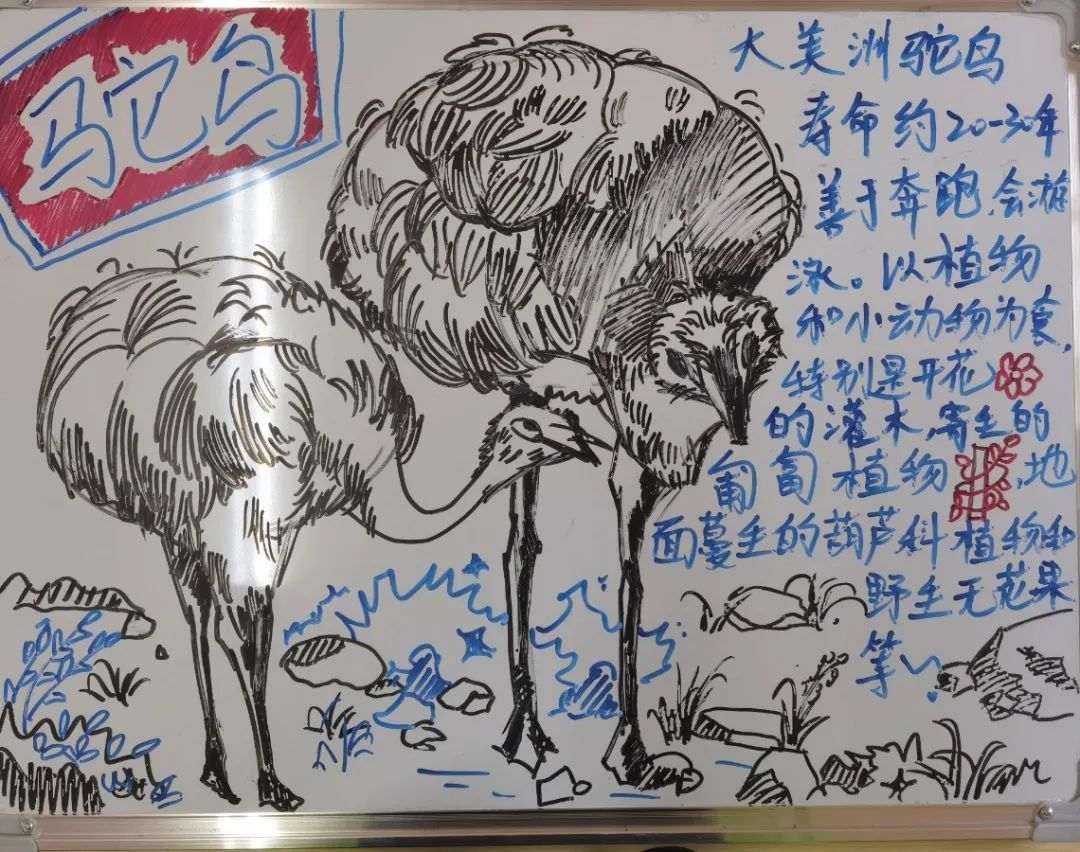 驼鸟
大美洲驼鸟
寿命约20-30年
善于奔跑,会游
泳。以植物
和小动物为食,
特别是开花
的灌木,寄生的
匍匐植物,地
面蔓生的葫芦科植物和
野生无花果
等~。